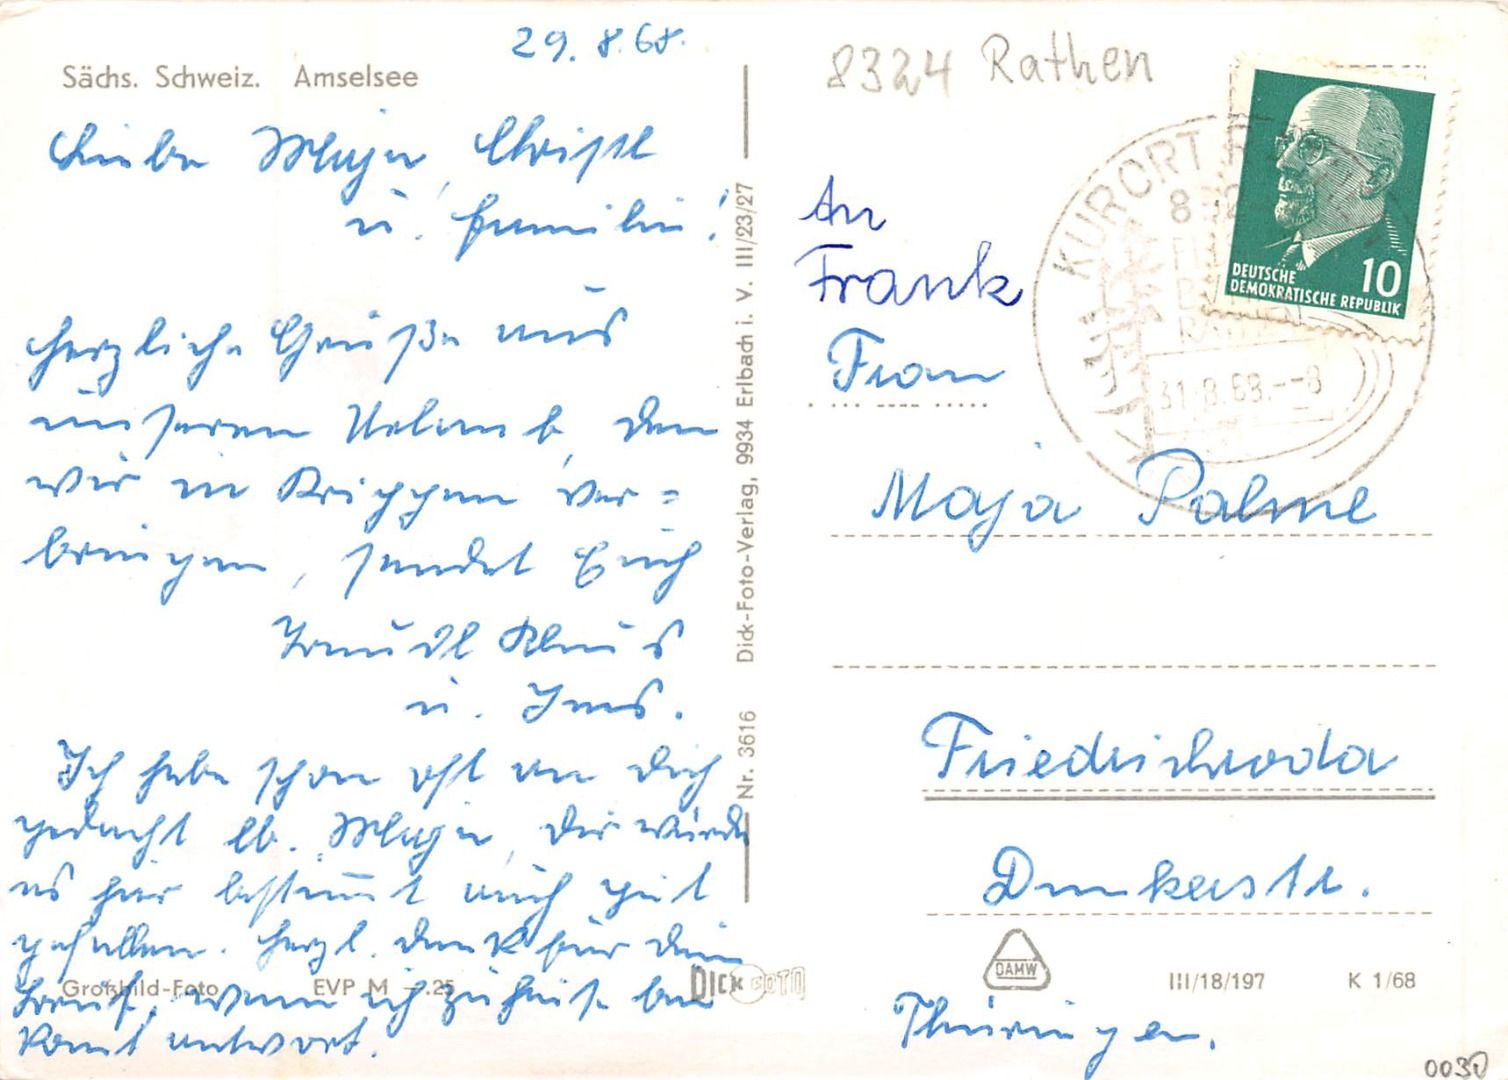 29. 8. 68.
Sächs. Schweiz. Amselsee
Liebe Maja, Christl
u. Familie!
Herzliche Grüße aus
unserem Urlaub, den
wir in Krippen ver=
bringen, sendet Euch
Traudl Klaus
u. Ines.
Ich habe schon oft an Dich
gedacht lb. Maja, Dir würde
es hier bestimmt auch gut
gefallen. Herzl. Dank für Dein
wenn ich zu Hause bin
kommt Antwort.
Großbild-Foto EVP M -.25
DICK FOTO
Nr. 3616 Dick-Foto-Verlag, 9934 Erlbach i. V. III/23/27
8324 Rathen
KURORT
31.8.68.--8
DEUTSCHE
DEMOKRATISCHE REPUBLIK
10
An
Frank
Frau
Maja Palme
Friedrichroda
Thüringen.
DAMW
III/18/197 K 1/68
0030